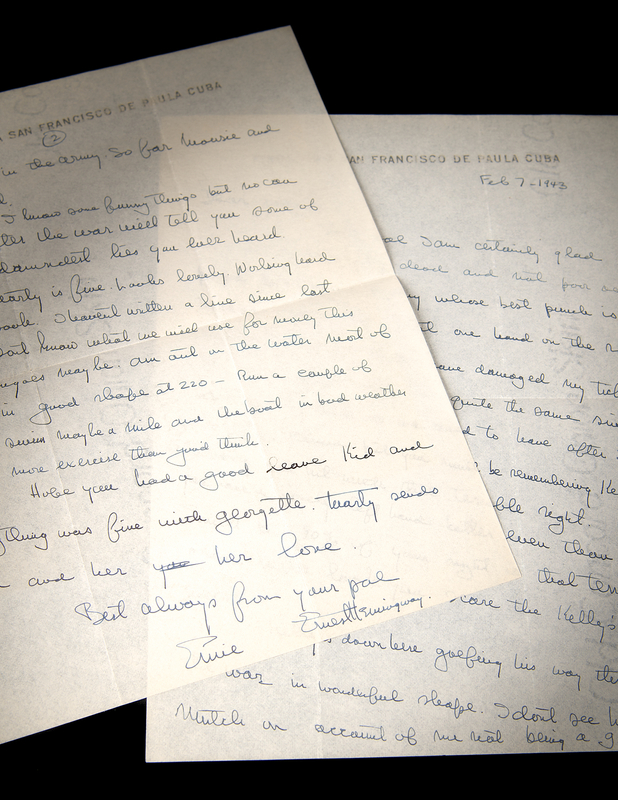 SAN FRANCISCO DE PAULA CUBA
2
in the army. So far Mousie and
I know some funny things but no can
the war will tell you some of
damndest lies you ever heard.
is fine. Looks lovely. Working hard
I havent written a line since last
know what we will use for money this
maybe. Am out on the water most of
in good shape at 220 — Run a couple of
swim maybe a mile and the boat in bad weather
more exercise than you'd think.
Hope you had a good leave Kid and
thing was fine with Georgette. Marty sends
and her you her love.
Best always from your pal
Ernie
Ernest Hemingway.
AN FRANCISCO DE PAULA CUBA
Feb 7 - 1943
I am certainly glad
dead and not poor
whose best punch is
one hand on the
have damaged my
quite the same
to leave after
be remembering
right.
even than
that
the Kelly's
down here golfing his way
war in wonderful shape. I dont see
Mutch on account of me not being a g